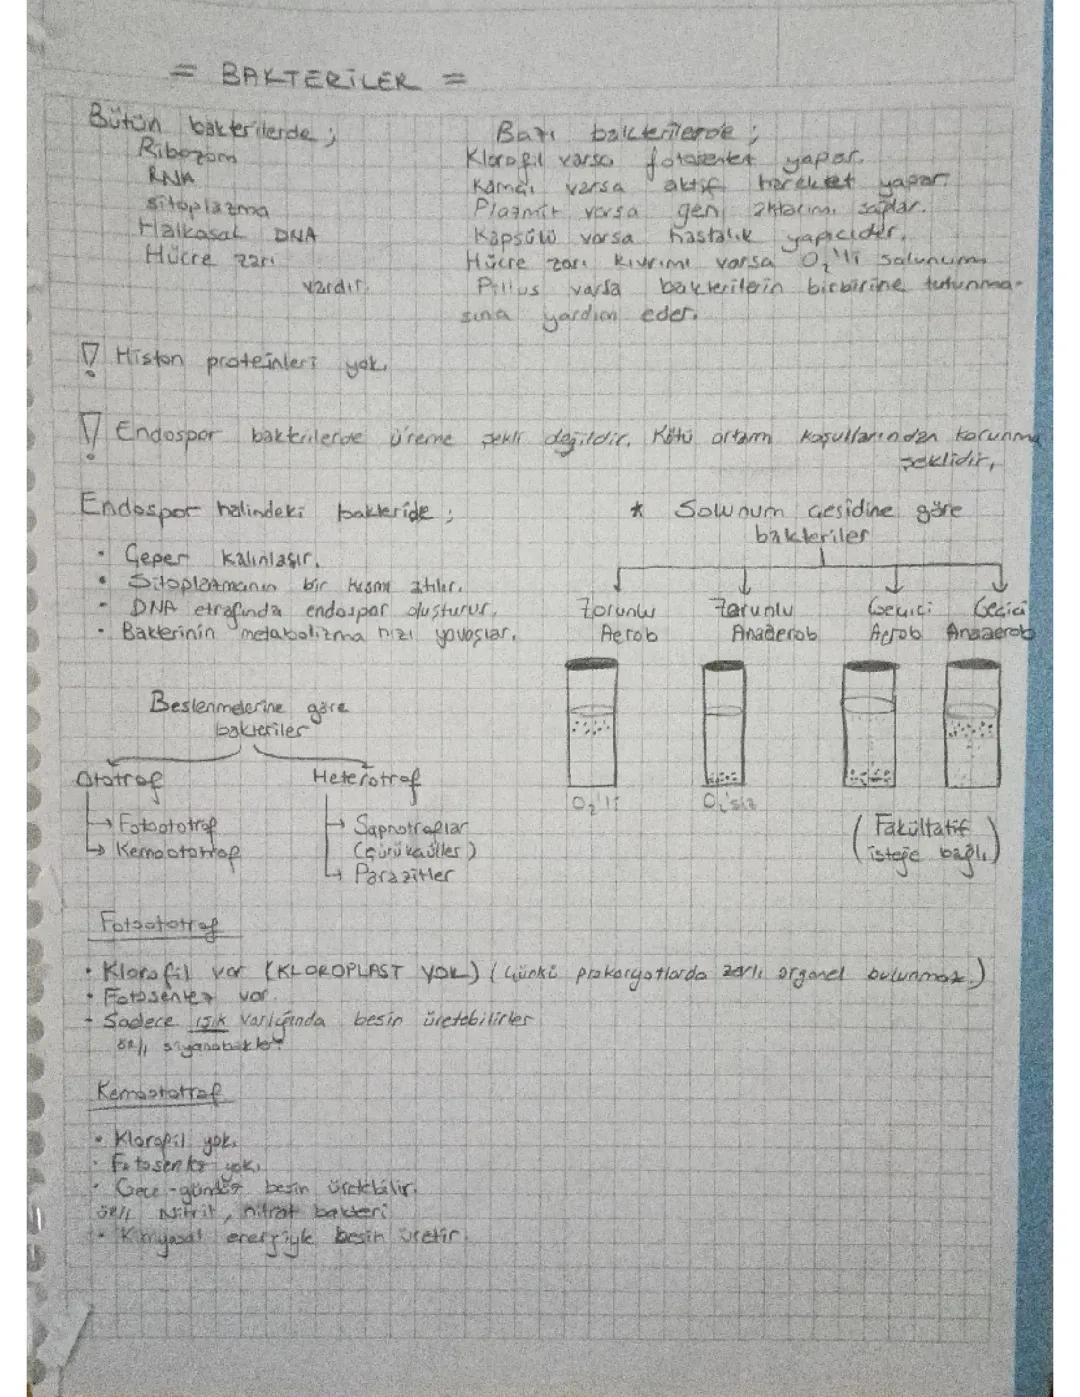 = BAKTERİLER =
Bütün bakterilerde ;
Ribozom
RNA
Sitoplazma
Halkasal DNA
Hücre zarı
vardır.
Bazı bakterilerde ;
Klorofil varsa fotosentez yapar.
Kamçı varsa aktif hareket yapar.
Plazmit varsa gen aktarımı sağlar.
Kapsülü varsa hastalık yapıcıdır.
Hücre zarı kıvrımı varsa O₂'li solunum
Pilus varsa bakterilerin birbirine tutunma-
sına yardım eder.
! Histon proteinleri yok.
! Endospor bakterilerde üreme şekli değildir. Kötü ortam koşullarından korunma
şeklidir.
Endospor halindeki bakteride ;
• Çeper kalınlaşır.
• Sitoplazmanın bir kısmı atılır.
• DNA etrafında endospor oluşturur.
• Bakterinin metabolizma hızı yavaşlar.
* Solunum çeşidine göre
bakteriler
Zorunlu
Aerob
Zorunlu
Anaerob
Geçici
Aerob
Geçici
Anaerob
O₂'li
O₂'siz
( Fakültatif
isteğe bağlı )
Beslenmelerine göre
bakteriler
Ototrof
→ Fotoototrof
→ Kemoototrof
Heterotrof
→ Saprotroflar
(Çürükçüller)
→ Parazitler
Fotoototrof
• Klorofil var (KLOROPLAST YOK) (Çünkü prokaryotlarda zarlı organel bulunmaz.)
• Fotosentez var.
• Sadece ışık varlığında besin üretebilirler
ör// siyanobakter
Kemoototrof
• Klorofil yok.
• Fotosentez yok.
• Gece-gündüz besin üretebilir.
ör// Nitrit, nitrat bakteri
• Kimyasal enerjiyle besin üretir.